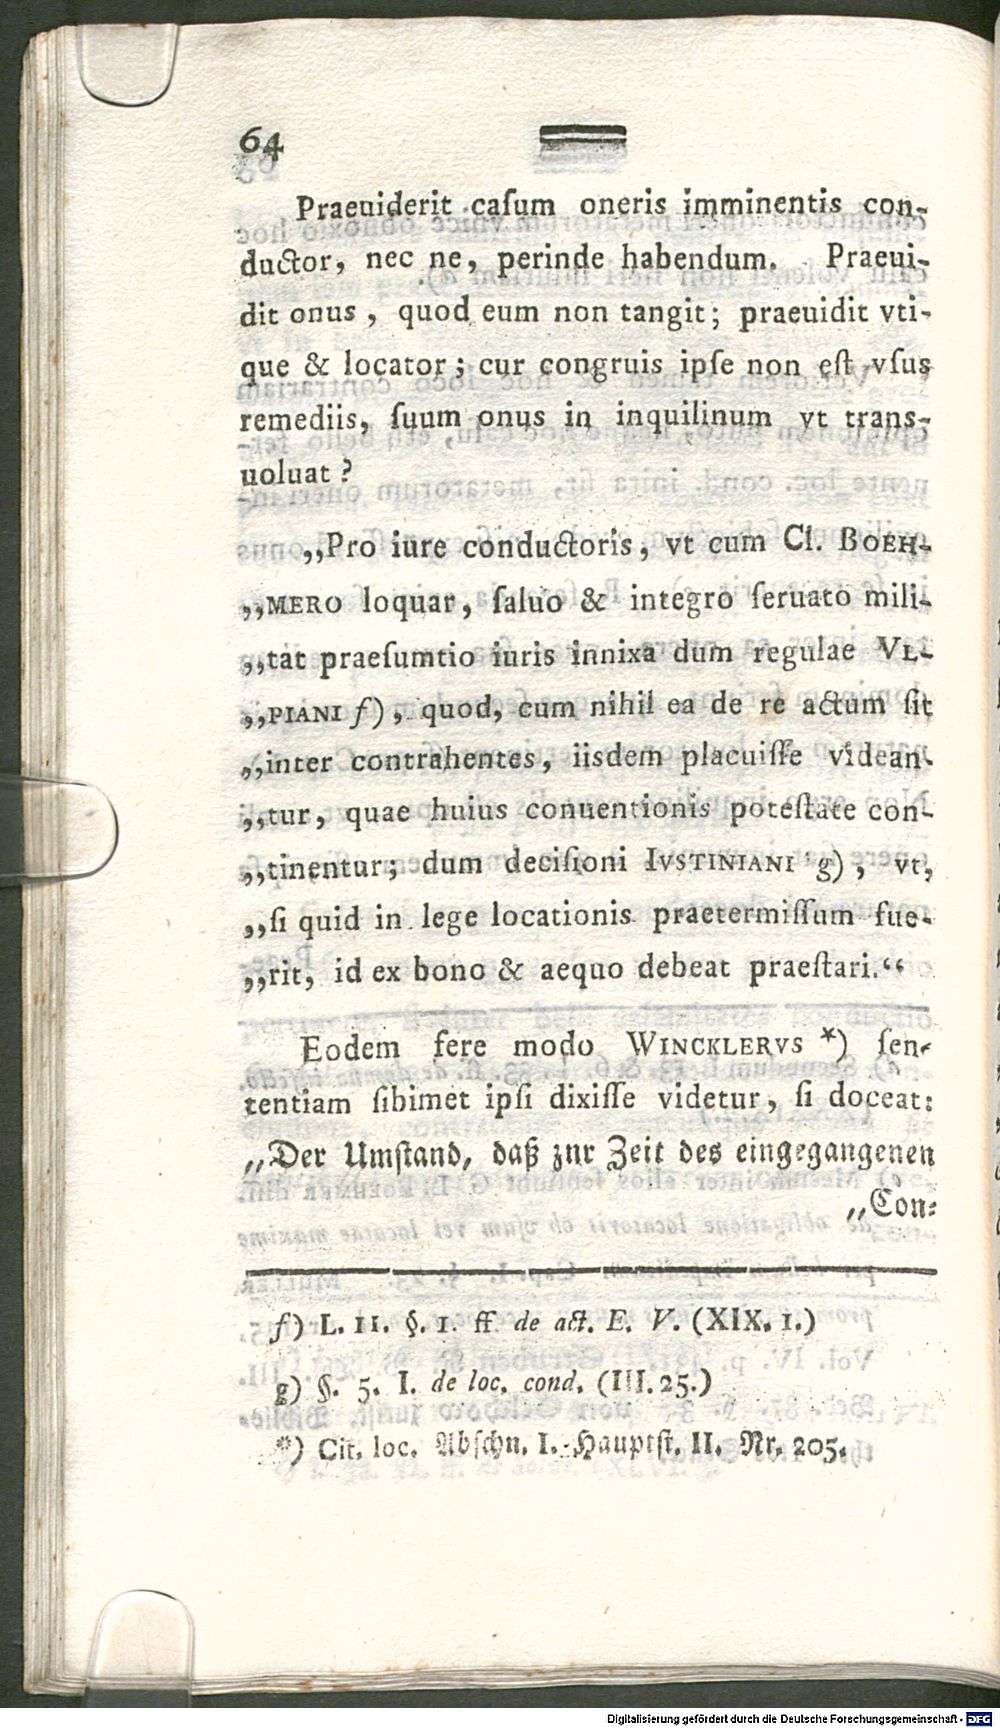 64
Praeuiderit caſum oneris imminentis con-
ductor, nec ne, perinde habendum. Praeui-
dit onus, quod eum non tangit; praeuidit vti-
que & locator; cur congruis ipſe non eſt vſus
remediis, ſuum onus in inquilinum vt trans-
uoluat?
„Pro iure conductoris, vt cum Cl. BOEH-
„MERO loquar, ſaluo & integro ſeruato mili-
„tat praeſumtio iuris innixa dum regulae VL-
„PIANI f), quod, cum nihil ea de re actum ſit
„inter contrahentes, iisdem placuiſſe videan-
„tur, quae huius conuentionis poteſtate con-
„tinentur; dum deciſioni IVSTINIANI g), vt,
„ſi quid in lege locationis praetermiſſum fue-
„rit, id ex bono & aequo debeat praeſtari.“
Eodem fere modo WINCKLERVS *) ſen-
tentiam ſibimet ipſi dixiſſe videtur, ſi doceat:
„Der Umſtand, daß zur Zeit des eingegangenen
„Con-
f) L. 11. §. 1. ff. de act. E. V. (XIX. 1.)
g) §. 5. I. de loc. cond. (III. 25.)
*) Cit. loc. Abſchn. I. Hauptſt. II. Nr. 205.
Digitalisierung gefördert durch die Deutsche Forschungsgemeinschaft - DFG